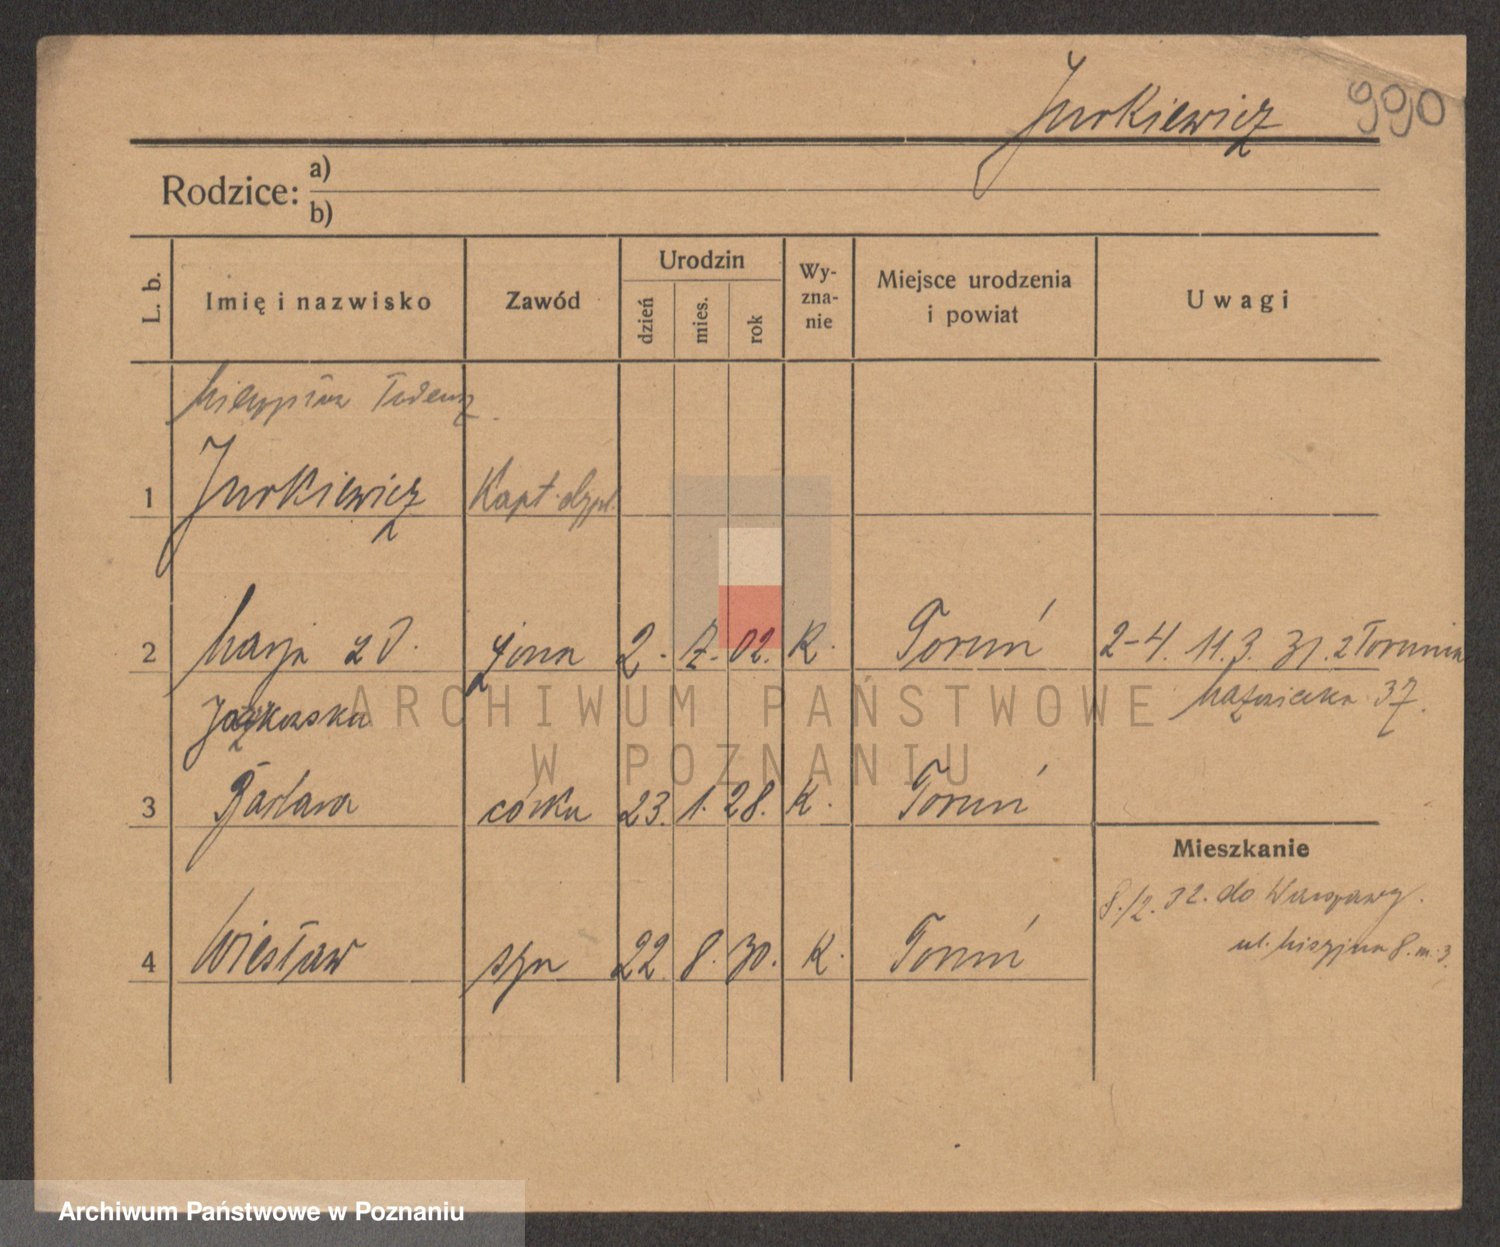 Jurkiewicz 990
Rodzice: a)
b)
L. b. Imię i nazwisko Zawód Urodzin dzień mies. rok Wy-zna-nie Miejsce urodzenia i powiat Uwagi
Tadeusz
1 Jurkiewicz Kapt. dypl.
2 Marja z d. żona 2. 7. 02. K. Toruń 2-4. 11.3. 31. z Torunia
37.
3 Barbara córka 23. 1. 28. K. Toruń
Mieszkanie
8./2. 32. do Warszawy.
ul. 8. m. 3.
4 Wiesław syn 22. 8. 30. K. Toruń
ARCHIWUM PAŃSTWOWE
W POZNANIU
Archiwum Państwowe w Poznaniu